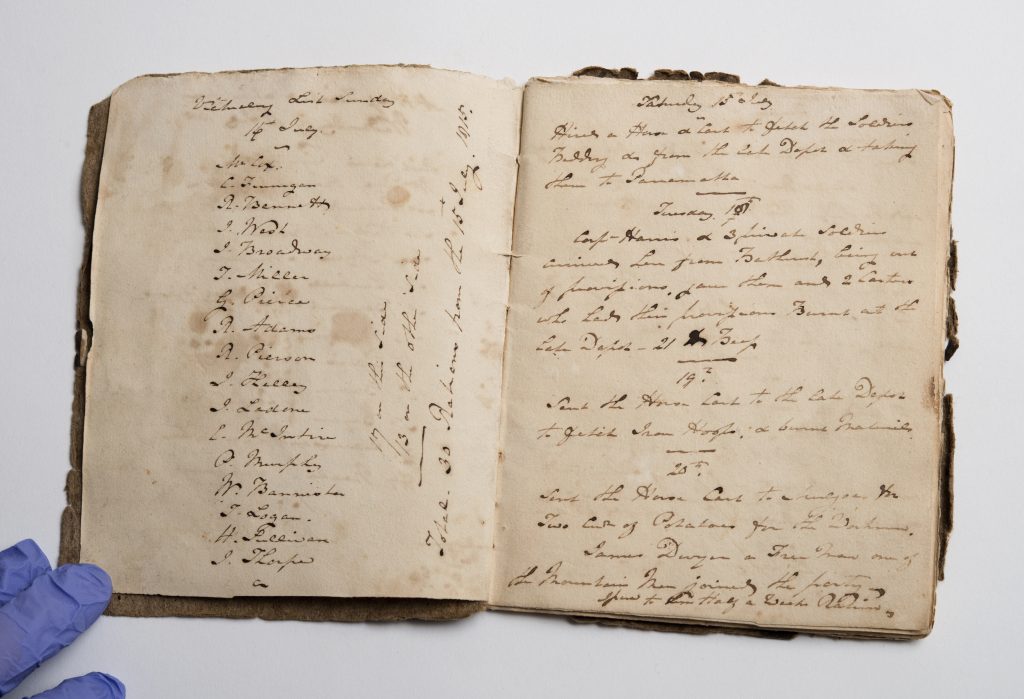 Victualling List Sunday
16th July.
M. Cox.
C. Finnigan
R. Bennett
J. West
J. Broadway
T. Miller
G. Pierce
R. Adams
R. Pierson
J. Kelley
J. Ladone
C. McIntire
P. Murphy
W. Bannister
T. Logan.
H. Sullivan
J. Thorpe
17 on this side
13 on the other side
Total. 30 Rations from the 15th July. 1815.
Saturday 15th July
Hired a Horse & Cart to fetch the Soldiers
Bedding &c from the late Depot & taking
them to Parramatta
Tuesday 18th
Corpl. Harris & 3 private Soldiers
arrived here from Bathurst, being out
of provisions, gave them and 2 Carters
who had their provisions Burnt at the
late Depot - 21 lb Beef
19th
Sent the Horse Cart to the late Depot
to fetch Iron Hoops, & burnt Materials.
20th
Sent the Horse Cart to for
Two cwt of Potatoes for the Workmen.
James Dwyer a Free Man one of
the Mountain Men joined the party
gave to him Half a Weeks Ration